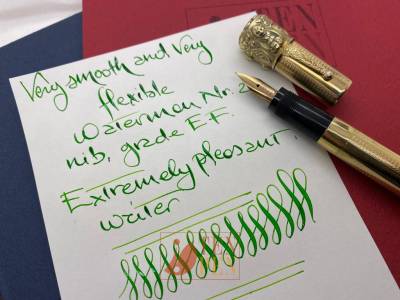 Very smooth and very
flexible
Waterman Nr. 2
nib, grade E.F.
Extremely pleasant
writer
PEN